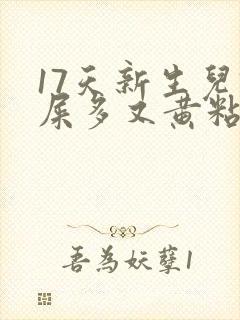 17天新生兒
屎多又黃粘
吾為妖孽1